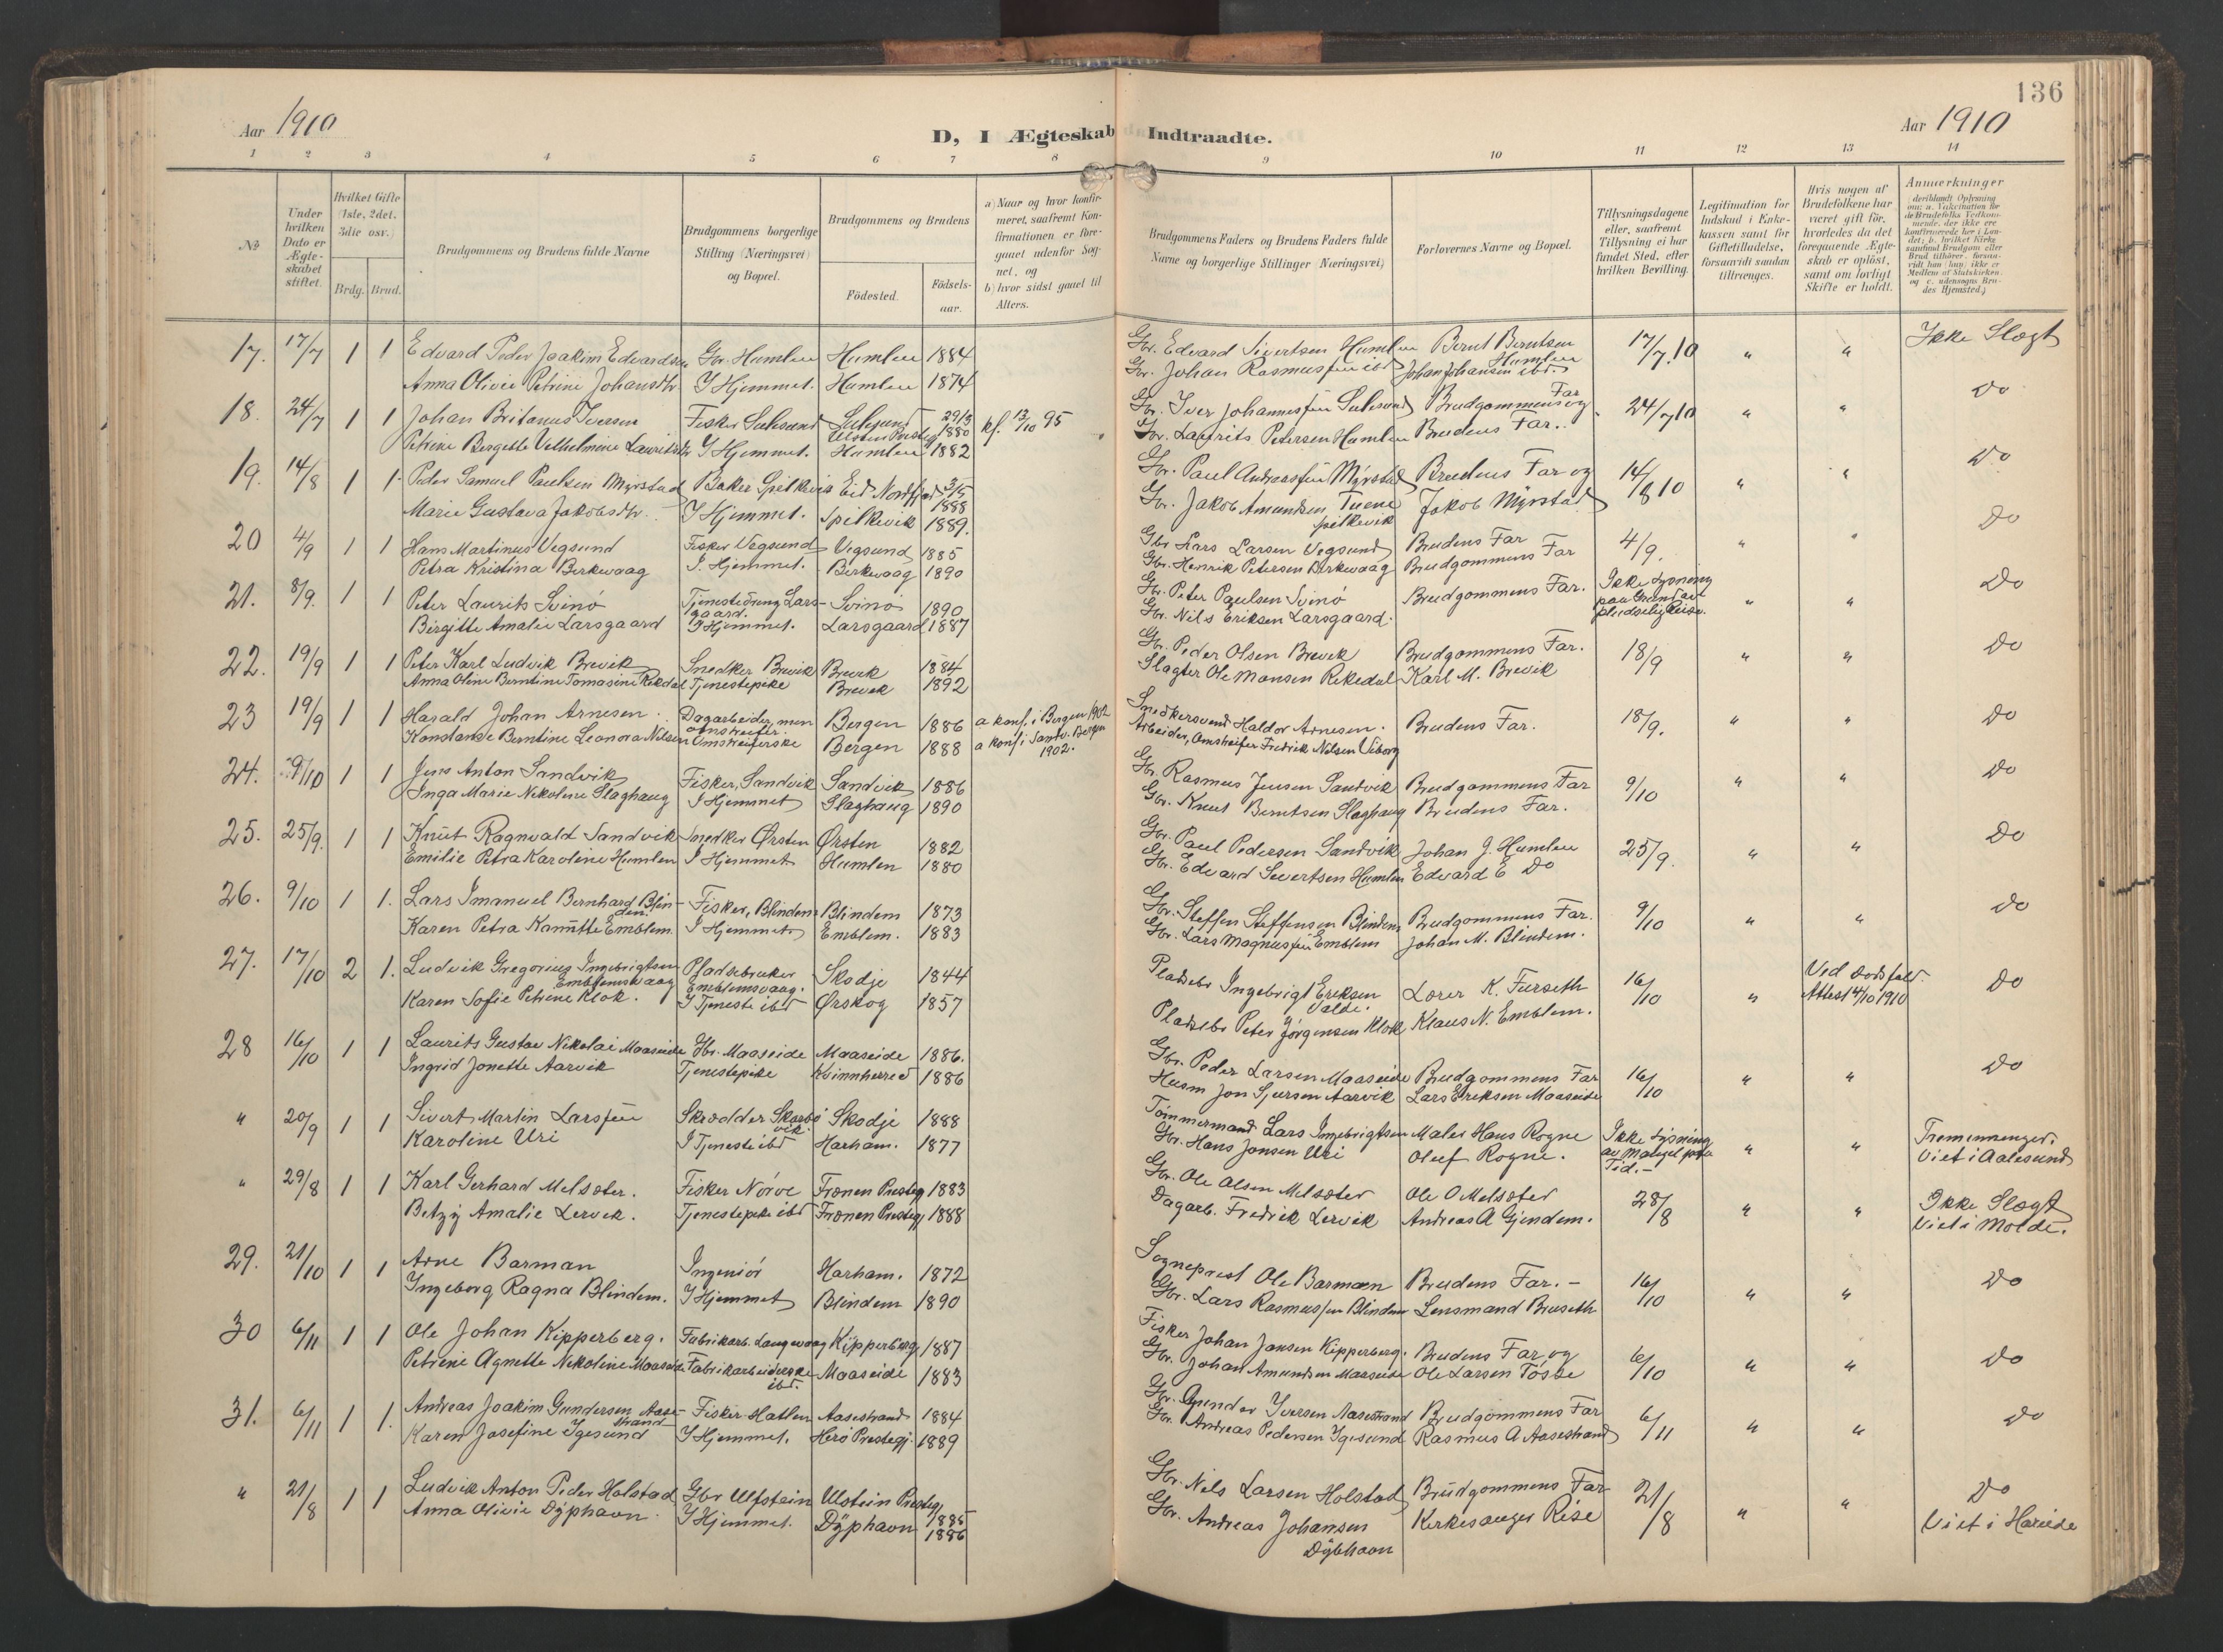 136
Aar 1910
D, I Ægteskab Indtraadte.
Aar 1910
1 2 3 4 5 6 7 8 9 10 11 12 13 14
№
Under hvilken Dato er Ægteskabet stiftet.
Hvilket Gifte (1ste, 2det, 3die osv.)
Brdg. Brud.
Brudgommens og Brudens fulde Navne
Brudgommens borgerlige Stilling (Næringsvei) og Bopæl.
Brudgommens og Brudens
Födested.
Födsels-aar.
a) Naar og hvor konfirmeret, saafremt Konfirmationen er foregaaet udenfor Sognet, og
b) hvor sidst gaaet til Alters.
Brudgommens Faders og Brudens Faders fulde Navne og borgerlige Stillinger (Næringsvei)
Forlovernes Navne og Bopæl.
Tillysningsdagene eller, saafremt Tillysning ei har fundet Sted, efter hvilken Bevilling.
Legitimation for Indskud i Enkekassen samt for Giftetilladelse, forsaavidt saadan tiltrænges.
Hvis nogen af Brudefolkene har været gift för, hvorledes da det foregaaende Ægteskab er oplöst, samt om lovligt Skifte er holdt.
Anmærkninger (deriblandt Oplysning om: a. Vaksination for de Brudefolks Vedkommende, der ikke ere konfirmerede her i Landet; b. hvilket Kirkesamfund Brudgom eller Brud tilhörer, forsaavidt han (hun) ikke er Medlem af Statskirken, og c. udensogns Brudes Hjemsted.)
17. 17/7 1 1 Edvard Peder Joakim Edvardsen Gbr. Humlen Humlen 1884 Gbr. Edvard Sivertsen Humlen Bernt Berntsen Humlen 17/7 10 " " Ikke Slægt
Anna Olivie Petrine Johansdtr. I Hjemmet. Humlen 1874 Gbr. Johan Rasmussen ibd Johan Johansen ibd.
18. 24/7 1 1 Johan Britanus Iversen Fisker Sulesund Sulesund Ulsten Prestegj 29/3 1880 kf. 13/10 95 Gbr. Iver Johannessen Sulesund Brudgommens Far og 24/7 10 " " Do
Petrine Bergette Vilhelmine Lauritsdtr I Hjemmet. Humlen 1882 Gbr. Laurits Petersen Humlen Brudens Far.
19. 14/8 1 1 Peder Samuel Paulsen Myrstad Baker Spilkevig Eid Nordfjord 3/5 1888 Gbr. Paul Andreassen Myrstad Brudens Far og 14/8 10 " " Do
Marie Gustava Jakobsdtr. I Hjemmet. Spilkevik 1889. Gbr. Jakob Amundsen Tuene Spilkevik Jakob Myrstad
20 4/9 1 1 Hans Martinus Vegsund Fisker Vegsund Vegsund 1885 Gbr Lars Larsen Vegsund Brudens Far 4/9. " " Do
Petra Kristina Berkevaag I Hjemmet. Berkevaag 1890 Gbr. Henrik Petersen Berkevaag Brudgommens Far
21. 8/9. 1 1 Peter Laurits Svinö Tjenestedreng Larsgaard. Svinö 1890 Gbr. Peter Paulsen Svinö Brudgommens Far. Ikke lysning paa Grund av pludselig Reise. " " Do
Birgitte Amalie Larsgaard I Hjemmet. Larsgaard 1887 Gbr. Nils Eriksen Larsgaard.
22. 19/9 1 1 Peter Karl Ludvik Brevik Snedker Brevik Brevik 1884 Gbr. Peder Olsen Brevek Brudgommens Far. 18/9 " " Do
Anna Oline Berntine Tomasine Rekdal Tjenestepike Brevek 1892 Slagter Ole Monsen Rekedal Karl M. Brevik
23 19/9 1 1 Harald Johan Arnesen. Dagarbeider, men omstreifer. Bergen 1886 a konf. i Bergen 1902 Snedkersvend Haldor Arnesen. Brudens Far. 18/9. " " Do
Konstanse Berntine Leonora Nilsen Omstreiferske Bergen 1888 a konf i Sandv. Bergen 1902. Arbeider, Omstreifer Fredrik Nilsen Viborg
24. 9/10 1 1 Jens Anton Sandvik Fisker, Sandvik Sandvik 1886 Gbr. Rasmus Jensen Sandvik Brudgommens Far 9/10 " " Do
Inga Marie Nikoline Slaghaug I Hjemmet Slaghaug 1890 Gbr. Knut Berntsen Slaghaug Brudens Far.
25. 25/9. 1 1 Knut Ragnvald Sandvik Snedker Ørsten Ørsten 1882 Gbr. Paul Pedersen Sandvik Johan J. Humlen 25/9. " " Do
Emilie Petra Karoline Humlen I Hjemmet Humlen 1880 Gbr. Edvard Sivertsen Humlen Edvard E Do
26. 9/10 1 1. Lars Imanuel Bernhard Blindem Fisker, Blindem Blindem 1873 Gbr. Steffen Steffensen Blindem Brudgommens Far. 9/10 " " Do
Karen Petra Kanutte Emblem I Hjemmet Emblem. 1883 Gbr. Lars Magnussen Emblem Johan M. Blindem.
27. 17/10 2 1. Ludvik Gregorius Ingebrigtsen Emblemsvaag Pladsebruker Emblemsvaag. Skodje 1844 Pladsebr Ingebrigt Eriksen Valde. Lorer K. Furseth 16/10 " Ved dödsfald. Attest 4/10 1910 Do
Karen Sofie Petrine Klok. I Tjeneste ibd Ørskog 1857 Pladsebr Peter Jörgensen Klok Klaus N. Emblem.
28 16/10 1 1 Laurits Gustav Nikolai Maaseide Gbr. Maaseide Maaseide 1886. Gbr. Peder Larsen Maaseide Brudgommens Far 16/10 " " Do
Ingrid Jonette Aarvik Tjenestepike Kvinnherred 1886 Husm Jon Sjursen Aarvik Lars Eriksen Maaseide
" 20/9 1 1 Sivert Martin Larssen Skrædder Skarbövik. Skodje 1888 Tömmermand Lars Ingebrigtsen Maler Hans Rogne Ikke lysning av Mangel paa Tid.- " " Tremenninger. Viet i Aalesund
Karoline Uri I Tjeneste ibd Harham. 1877 Gbr. Hans Jonsen Uri Oluf Rogne.
" 29/8 1 1 Karl Gerhard Melsæter. Fisker Nörve Frænen Prestegj 1883 Gbr. Ole Olsen Melsæter Ole O Melsæter 28/8 " " Ikke Slægt Viet i Molde.
Betzy Amalie Lervik. Tjenestepike ibd Frænen Prestegj 1888 Dagarb. Fredrik Lervik Andreas A Gjendem.
29. 21/10 1 1 Arne Barman Ingeniör Harham. 1872 Sogneprest Ole Barman Brudens Far. - 16/10 " " Do
Ingeborg Ragna Blindem. I Hjemmet Blindem 1890 Gbr. Lars Rasmussen Blindem Lensmand Bruseth
30 6/11 1 1 Ole Johan Kipperberg. Fabrikarb. Langevaag Kipperberg. 1887 Fisker Johan Jonsen Kipperberg. Brudens Far og 6/10 " " Do
Petrine Agnette Nikoline Maaseide Fabrikarbeiderske ibd. Maaseide 1883 Gbr. Johan Amundsen Maaseide Ole Larsen Tösse
31. 6/11 1 1. Andreas Joakim Gundersen Aasestrand Fisker Hatlen Aasestrand 1884 Gbr. Gunder Iversen Aasestrand Brudgommens Far 6/11 " " Do
Karen Josefine Igesund I Hjemmet. Herö Prestegj. 1889 Gbr. Andreas Pedersen Igesund Rasmus A Aasestrand
" 21/8 1 1 Ludvik Anton Peder Holstad Gbr Ulfstein Ulstein Prestegj 1885 Gbr. Nils Larsen Holstad Brudgommens Far 21/8 " " Do Viet i Hareide
Anna Olivie Dyphavn. I Hjemmet. Dyphavn 1886 Gbr. Andreas Johansen Dybhavn Kirkesanger Rise